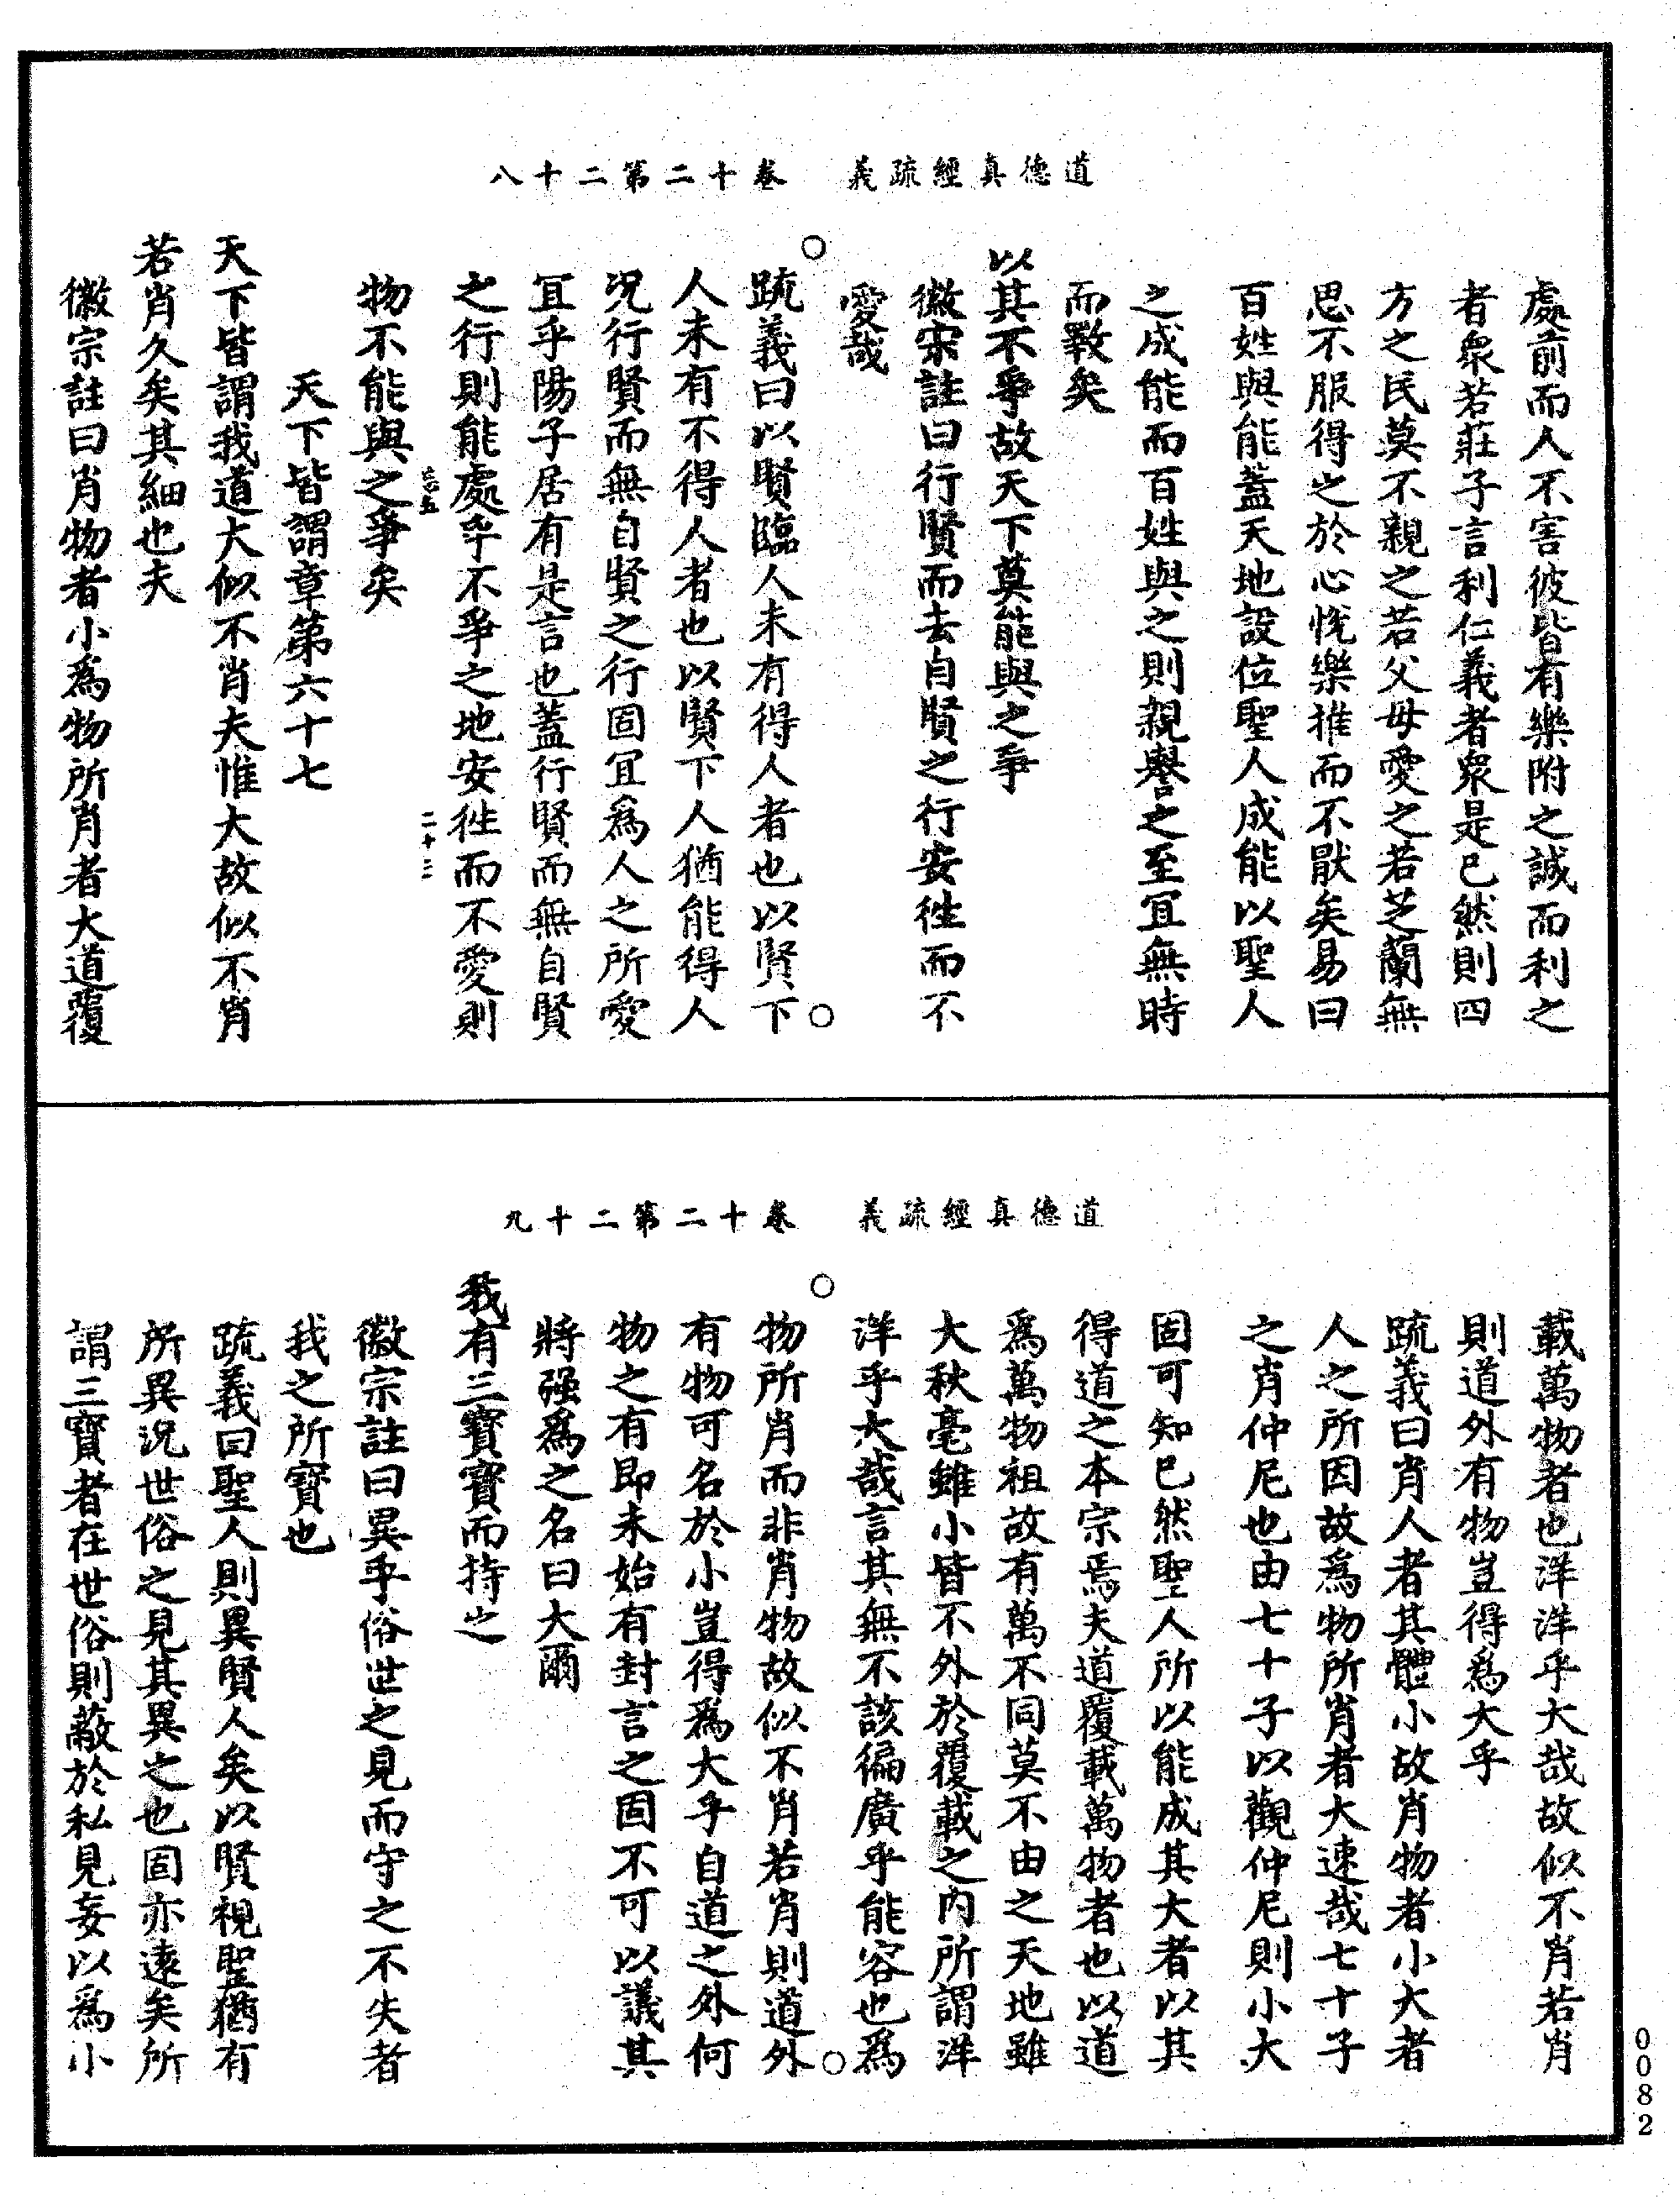 道德真經疏義　卷十二第二十八
處前而人不害彼皆有樂附之誠而利之
者衆若莊子言利仁義者衆是已然則四
方之民莫不親之若父母愛之若芝蘭無
思不服得之於心悅樂推而不猒矣易曰
百姓與能蓋天地設位聖人成能以聖人
之成能而百姓與之則親譽之至冝無時
而斁矣
以其不爭故天下莫能與之爭
徽宗註曰行賢而去自賢之行安徃而不
愛哉
疏義曰以賢臨人未有得人者也以賢下
人未有不得人者也以賢下人猶能得人
况行賢而無自賢之行固冝爲人之所愛
冝乎陽子居有是言也蓋行賢而無自賢
之行則能處乎不爭之地安徃而不愛則
二十三
物不能與之爭矣
天下皆謂章第六十七
天下皆謂我道大似不肖夫惟大故似不肖
若肖久矣其細也夫
徽宗註曰肖物者小爲物所肖者大道覆
道德真經疏義　卷十二第二十九
載萬物者也洋洋乎大哉故似不肖若肖
則道外有物豈得爲大乎
疏義曰肖人者其體小故肖物者小大者
人之所因故爲物所肖者大速哉七十子
之肖仲尼也由七十子以觀仲尼則小大
固可知已然聖人所以能成其大者以其
得道之本宗焉夫道覆載萬物者也以道
爲萬物祖故有萬不同莫不由之天地雖
大秋毫雖小皆不外於覆載之内所謂洋
洋乎大哉言其無不該徧廣乎能容也爲
物所肖而非肖物故似不肖若肖則道外
有物可名於小豈得爲大乎自道之外何
物之有即未始有封言之固不可以議其
將强爲之名曰大爾
我有三寳寳而持之
徽宗註曰異乎俗世之見而守之不失者
我之所寳也
疏義曰聖人則異賢人矣以賢視聖猶有
所異况世俗之見其異之也固亦遠矣所
謂三寳者在世俗則蔽於私見妄以爲小
0082